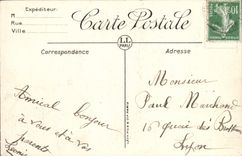 Expéditeur:
M
Rue
Ville
Carte Postale
LL
PARIS
Correspondance
Adresse
10
Amical bonjour
à vous et à vos
parents
Monsieur
Paul Marchand
16 quai des
Lyon